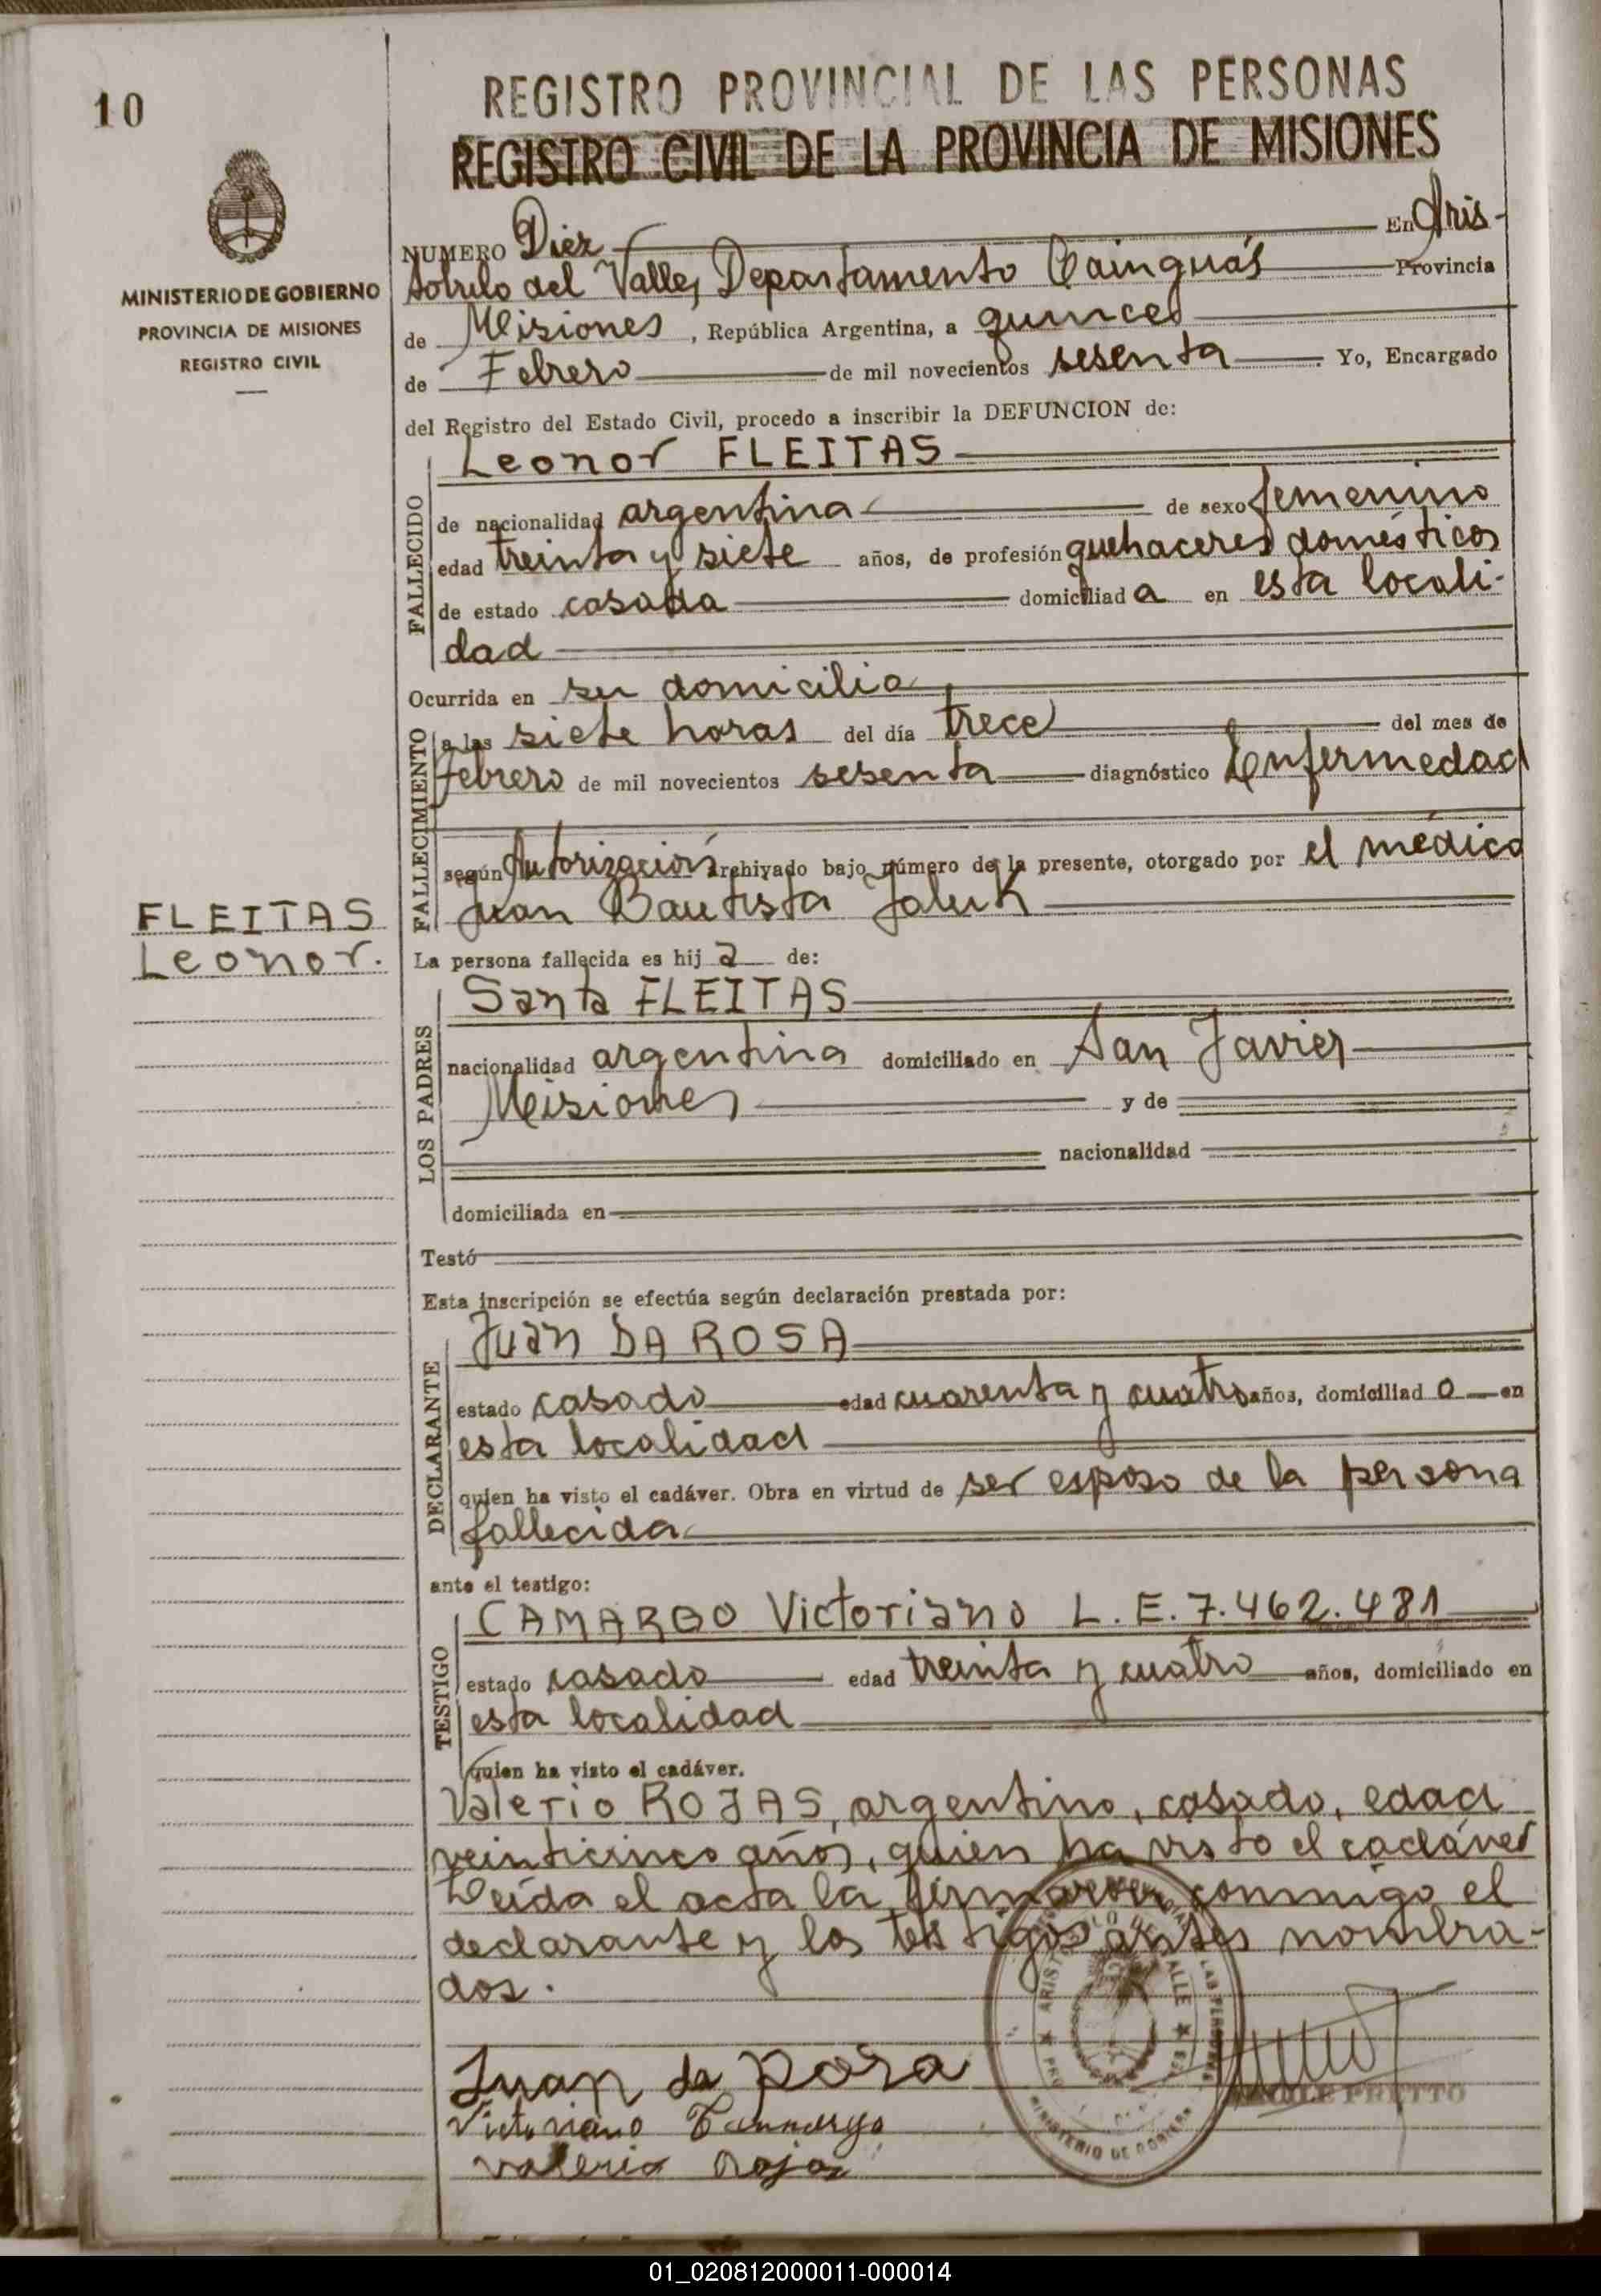 10
REGISTRO PROVINCIAL DE LAS PERSONAS
REGISTRO CIVIL DE LA PROVINCIA DE MISIONES
MINISTERIO DE GOBIERNO
PROVINCIA DE MISIONES
REGISTRO CIVIL
NUMERO Diez En Aris-
tobulo del Valle, Departamento Cainguás Provincia
de Misiones, República Argentina, a quince
de Febrero de mil novecientos sesenta. Yo, Encargado
del Registro del Estado Civil, procedo a inscribir la DEFUNCION de:
FALLECIDO
Leonor FLEITAS
de nacionalidad argentina de sexo femenino
edad treinta y siete años, de profesión quehaceres domésticos
de estado casada domiciliada en esta locali-
dad
Ocurrida en su domicilio
FALLECIMIENTO
a las siete horas del día trece del mes de
febrero de mil novecientos sesenta diagnóstico Enfermedad
según Autorización archivado bajo número de la presente, otorgado por el médico
Juan Bautista
FLEITAS
Leonor.
La persona fallecida es hija de:
LOS PADRES
Santa FLEITAS
nacionalidad argentina domiciliado en San Javier
Misiones y de
nacionalidad
domiciliada en
Testó
Esta inscripción se efectúa según declaración prestada por:
DECLARANTE
Juan DA ROSA
estado casado edad cuarenta y cuatro años, domiciliado en
esta localidad
quien ha visto el cadáver. Obra en virtud de ser esposo de la persona
fallecida
ante el testigo:
TESTIGO
CAMARGO Victoriano L.E. 7.462.481
estado casado edad treinta y cuatro años, domiciliado en
esta localidad
quien ha visto el cadáver.
Valerio ROJAS, argentino, casado, edad
veinticinco años, quien ha visto el cadáver
Leída el acta la firmaron conmigo el
declarante y los testigos antes nombra-
dos.
Juan da Rosa
Victoriano Camargo
Valerio Rojas
MINISTERIO DE GOBIERNO
PRETTO
01_020812000011-000014